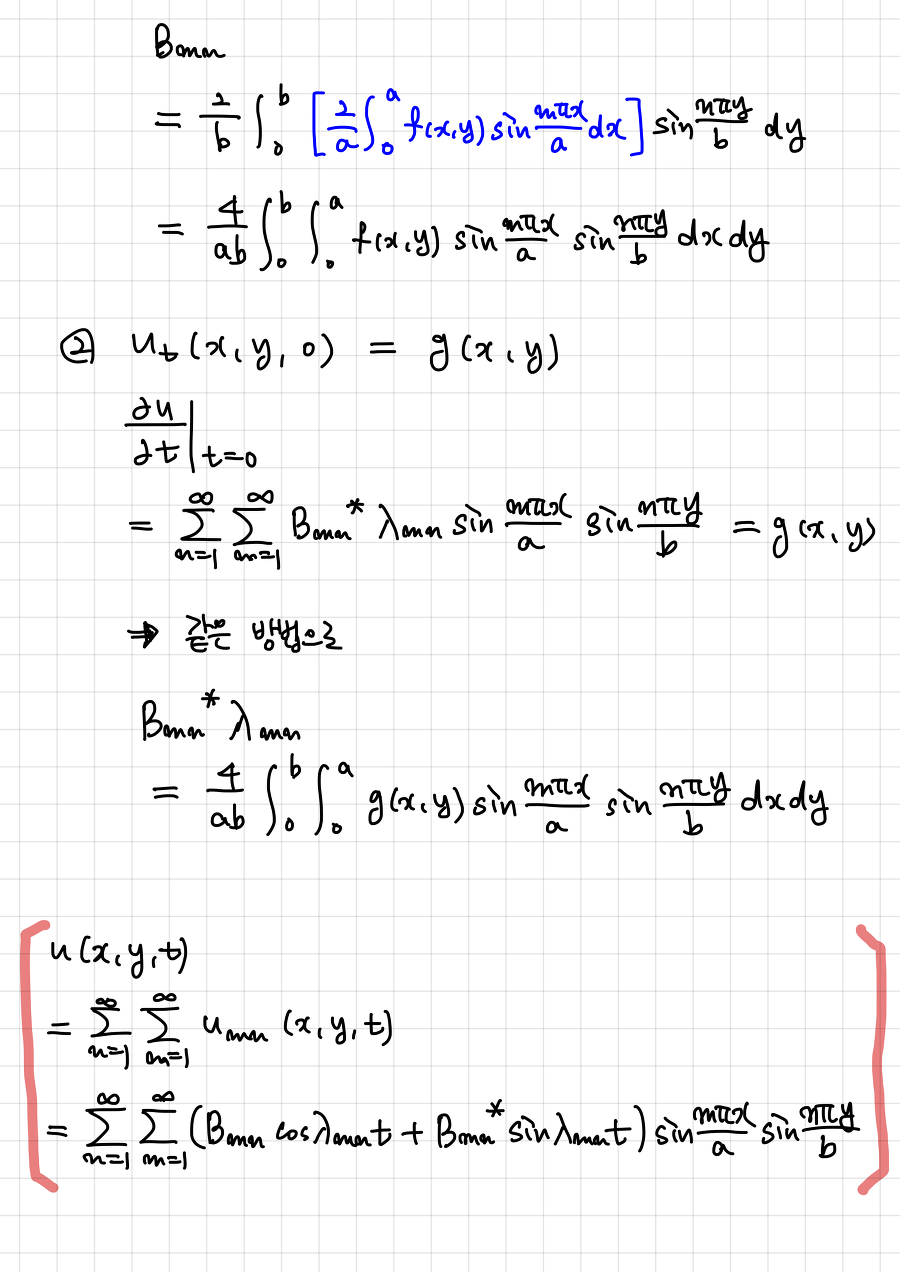 Bmn
= 2/b ∫₀ᵇ [2/a ∫₀ᵃ f(x,y) sin mπx/a dx] sin nπy/b dy
= 4/ab ∫₀ᵇ ∫₀ᵃ f(x,y) sin mπx/a sin nπy/b dx dy
② uₜ(x,y,0) = g(x,y)
∂u/∂t |t=0
= ∑n=1^∞ ∑m=1^∞ Bmn* λmn sin mπx/a sin nπy/b = g(x,y)
⇒ 같은 방법으로
Bmn* λmn
= 4/ab ∫₀ᵇ ∫₀ᵃ g(x,y) sin mπx/a sin nπy/b dx dy
u(x,y,t)
= ∑n=1^∞ ∑m=1^∞ umn (x,y,t)
= ∑n=1^∞ ∑m=1^∞ (Bmn cosλmnt + Bmn* sinλmnt) sin mπx/a sin nπy/b